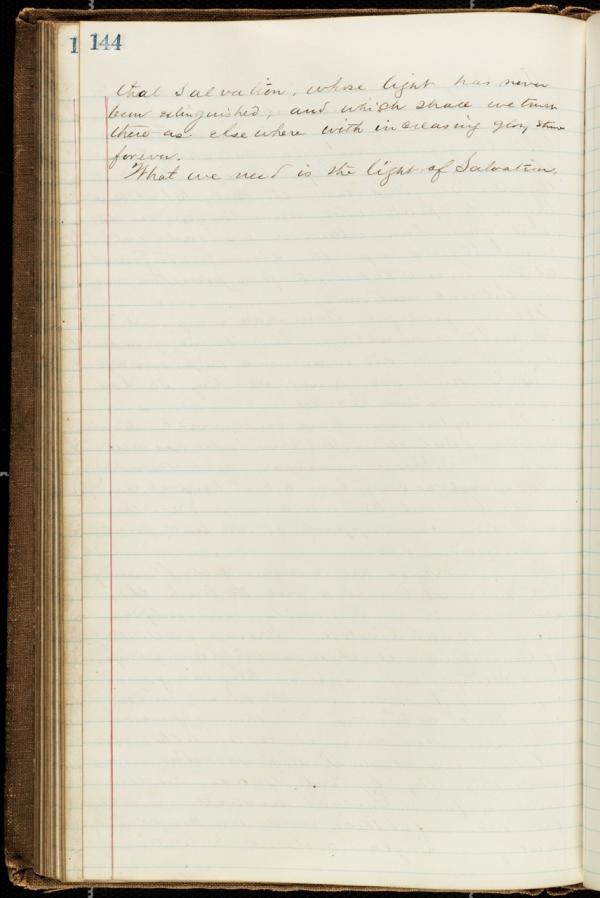 1 144
that Salvation, whose light has never
been extinguished, and which grace we trust
there as elsewhere with increasing glory shine
forever.
What we need is the light of Salvation.